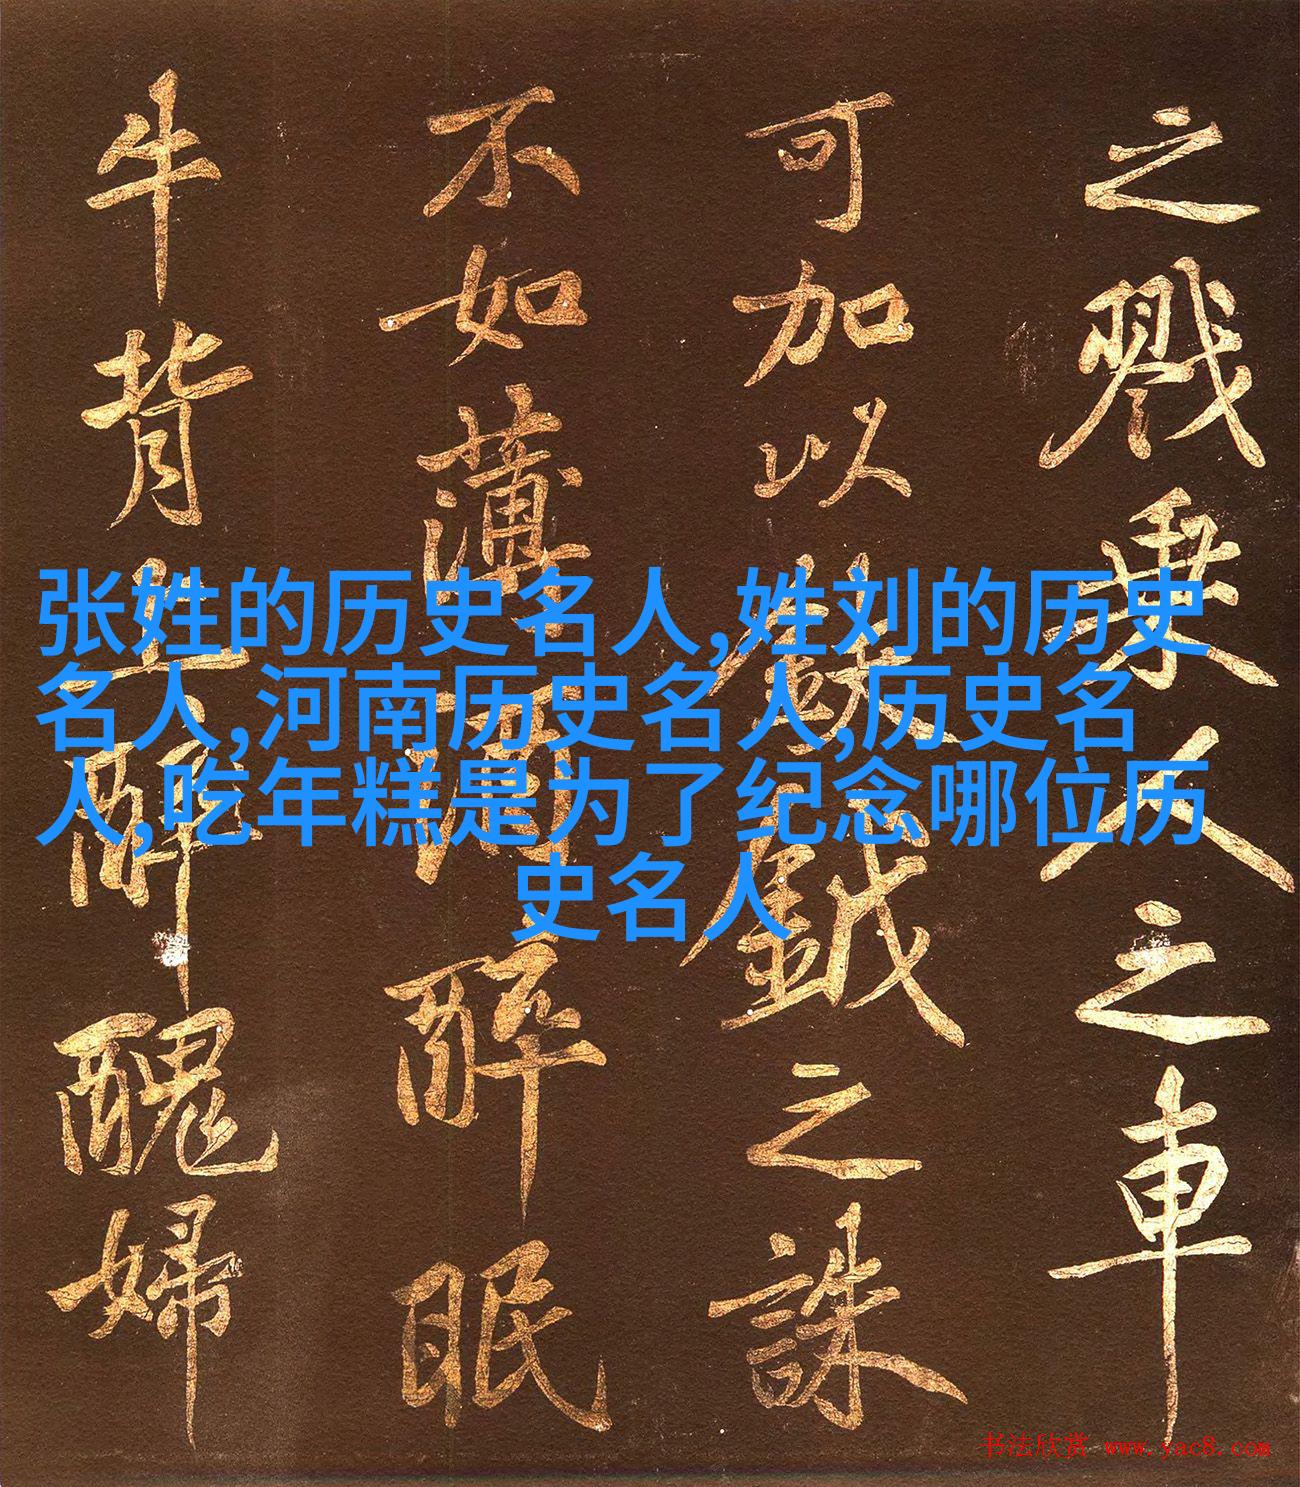 之戮乘人之車
可加以鈇鉞之誅
不如薄酒醉眠
牛背上醉醜婦
张姓的历史名人,姓刘的历史
名人,河南历史名人,历史名
人,吃年糕是为了纪念哪位历
史名人
书法欣赏 www.yac8.com